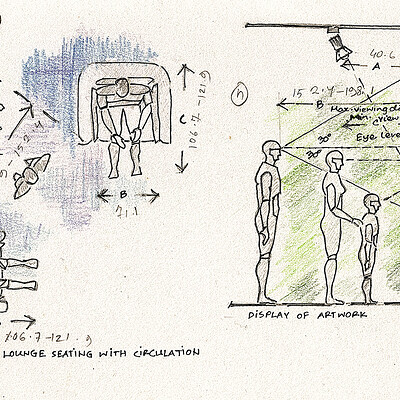 40.6
A
15 2.4 - 198.1
B
Max. viewing di
Min.
Eye leve
30°
30°
h
C
106.7 - 121.9
B
71.1
106.7 - 121.9
LOUNGE SEATING WITH CIRCULATION
DISPLAY OF ARTWORK